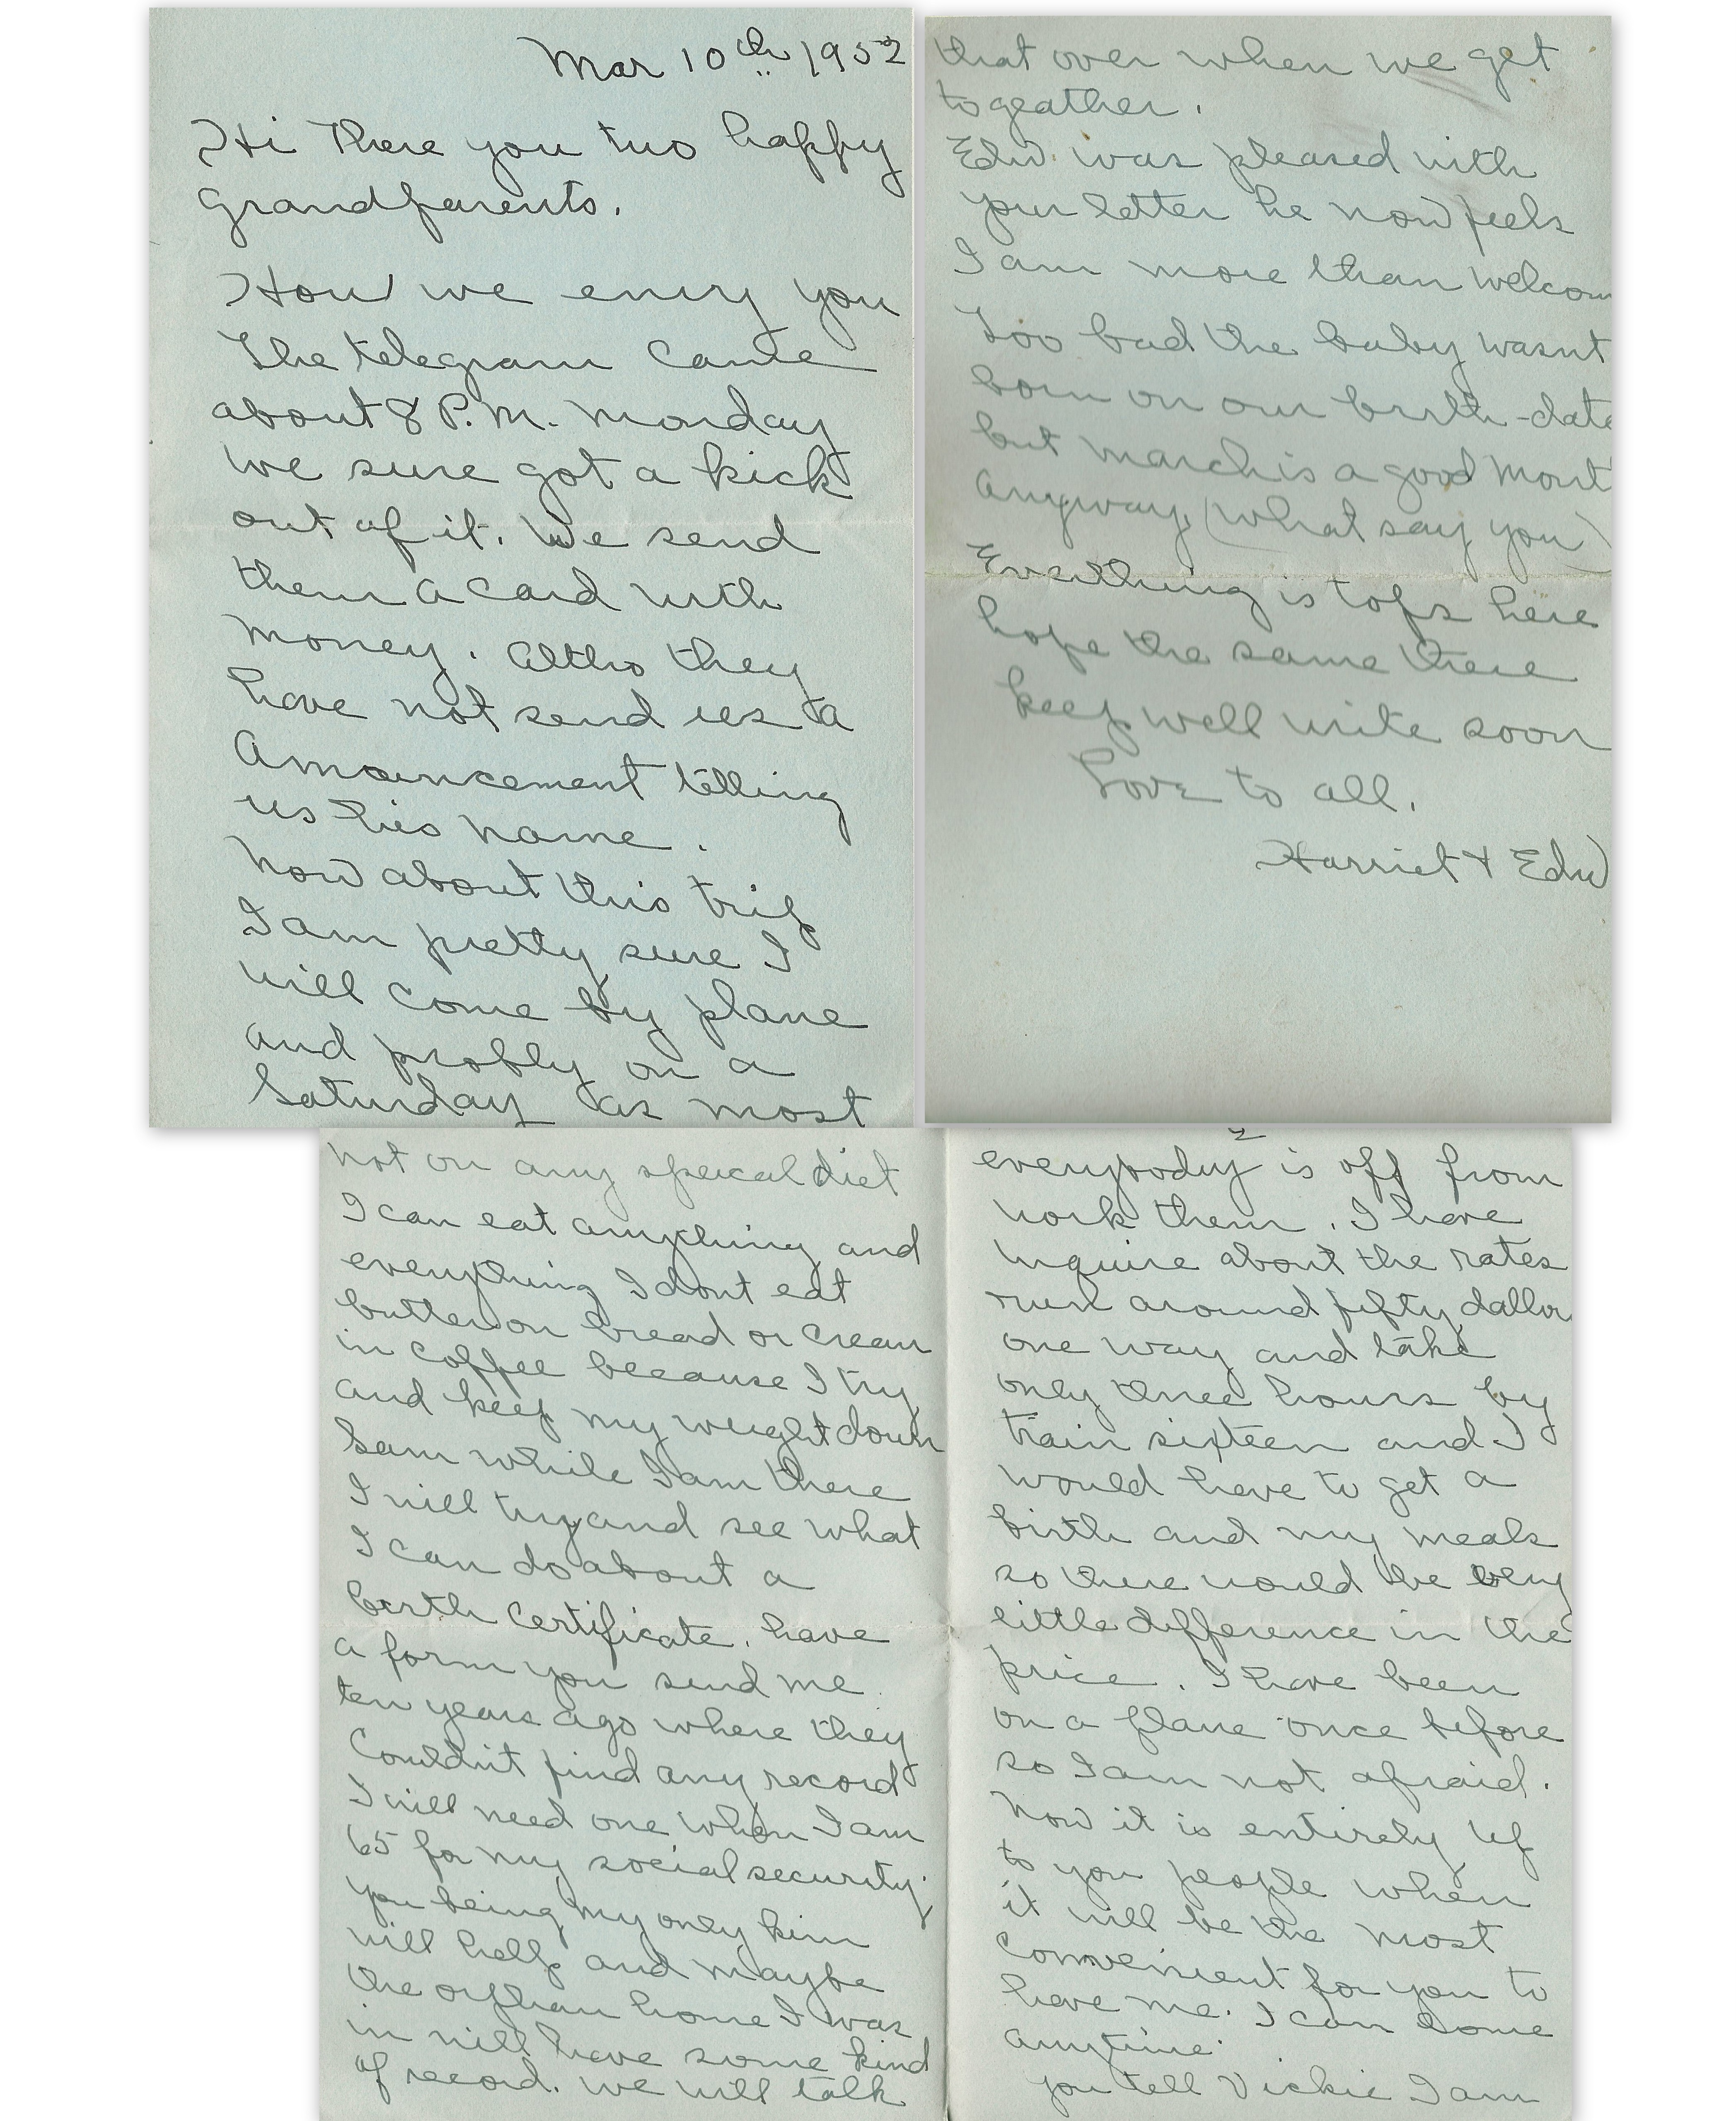 Mar 10th 1952
Hi There you two happy
Grandparents.
How we envy you
The telegram came
about 8 P.M. Monday
we sure got a kick
out of it. We send
them a card with
money. Altho they
have not send us a
Announcement telling
us his name.
Now about this trip
I am pretty sure I
will come by plane
and probly on a
Saturday as most
2
everybody is off from
work them. I have
inquire about the rates
run around fifty dallors
one way and take
only three hours by
train sixteen and I
would have to get a
birth and my meals
so there would be very
little difference in the
price. I have been
on a plane once before
so I am not afraid.
Now it is entirely up
to you people when
it will be the most
convenient for you to
have me. I can come
anytime.
you tell Vickie I am
not on any speical diet
I can eat anything and
everything I dont eat
butter on bread or cream
in coffee because I try
and keep my weight down
Sam while I am there
I will try and see what
I can do about a
birth certificate. have
a form you send me
ten years ago where they
Couldnt find any record
I will need one when I am
65 for my social security.
you being my only kin
will help and maybe
the orphan home I was
in will have some kind
of record. we will talk
that over when we get
togeather.
Edw was pleased with
your letter he now feels
I am more than welcom
Too bad the baby wasnt
born on our birth-date
but march is a good mont
anyway, (what say you)
Everthing is tops here
hope the same there
keep well write soon
Love to all.
Harriet & Edw